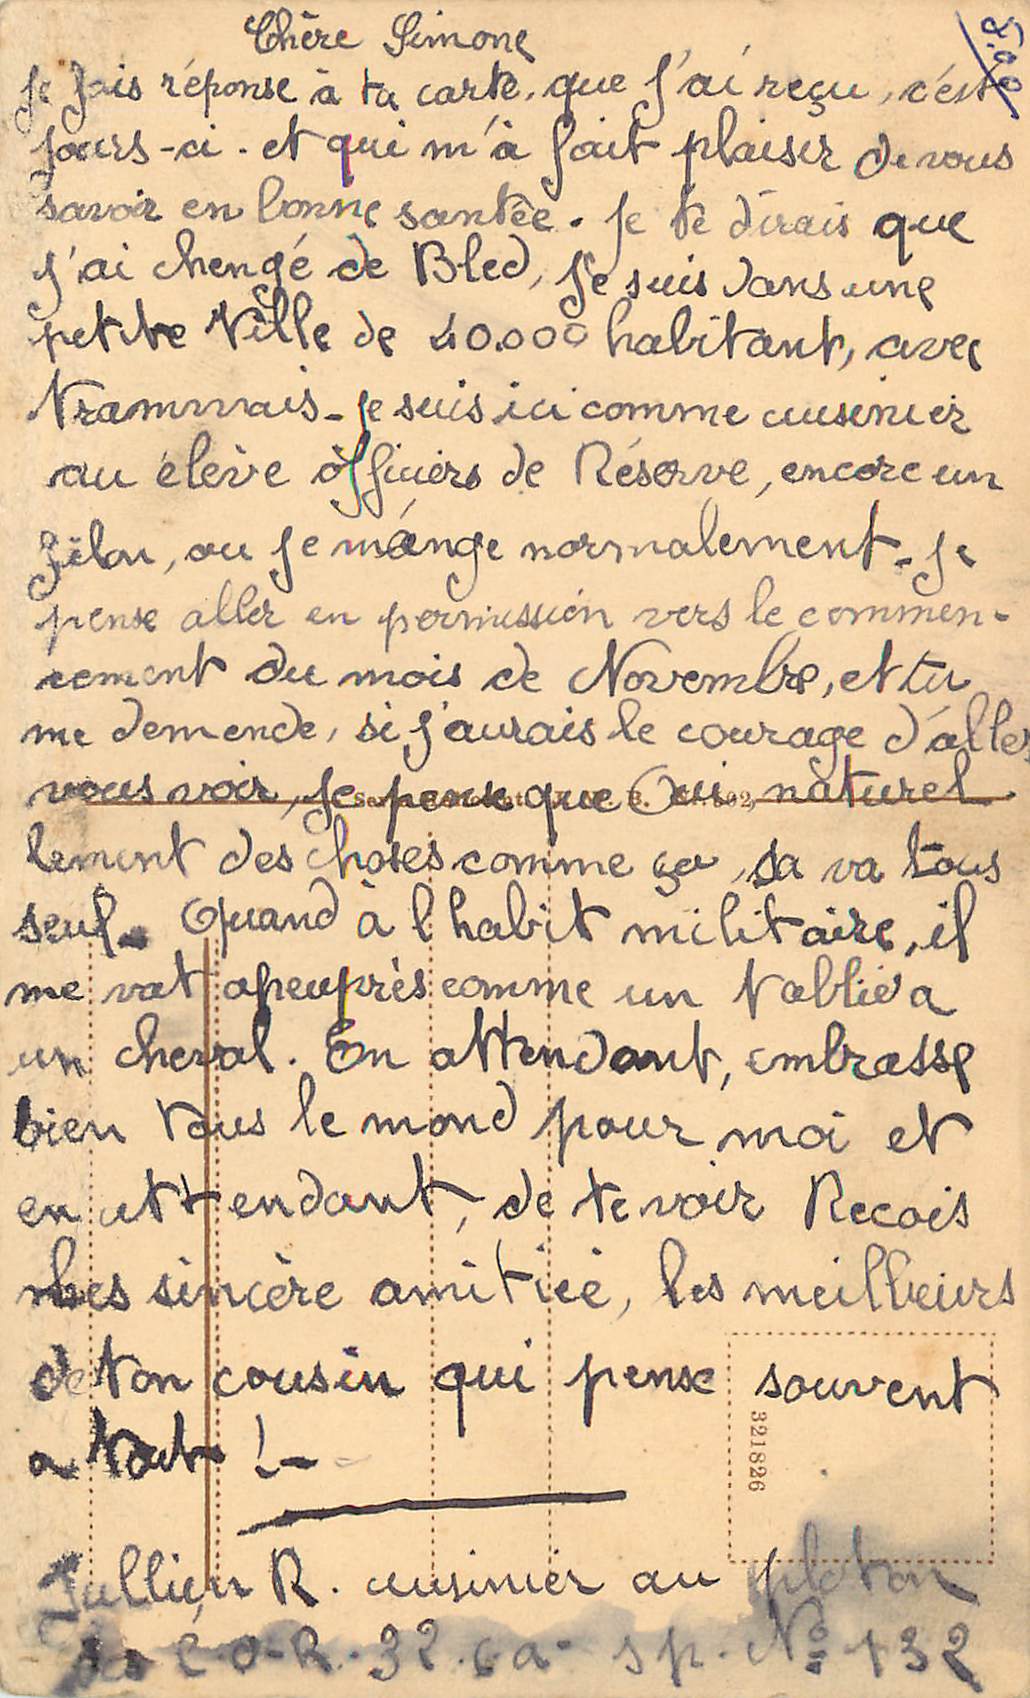 Chère Simone
Je fais réponse à ta carte, que j'ai reçu, c'est
jours-ci. et qui m'à fait plaisir de vous
savoir en bonne santêe. Je te dirais que
j'ai chengé de Bled, je suis dans une
petite Ville de 40.000 habitant, avec
Trammais - je suis ici comme cuisinier
au élève officiers de Réserve, encore un
filon, ou je mánge normalement. Je
pense aller en permission vers le commen-
cement du mois de Novembre, et tu
me demende, si j'aurais le courage d'aller
vous voir, je pense que Oui, naturel
lement des choses comme ça, sa va tous
seul. Quand à l habit militaire, il
me vat apeuprès comme un tablié a
un cheval. En attendant, embrasse
bien tous le mond pour moi et
en attendant, de te voir Recois
mes sincère amitiée, les meilleurs
de ton cousin qui pense souvent
a toit !-
321826
Jullien R. cuisinier au ploton
des E-O-R. 32. c.a. sp. No 132